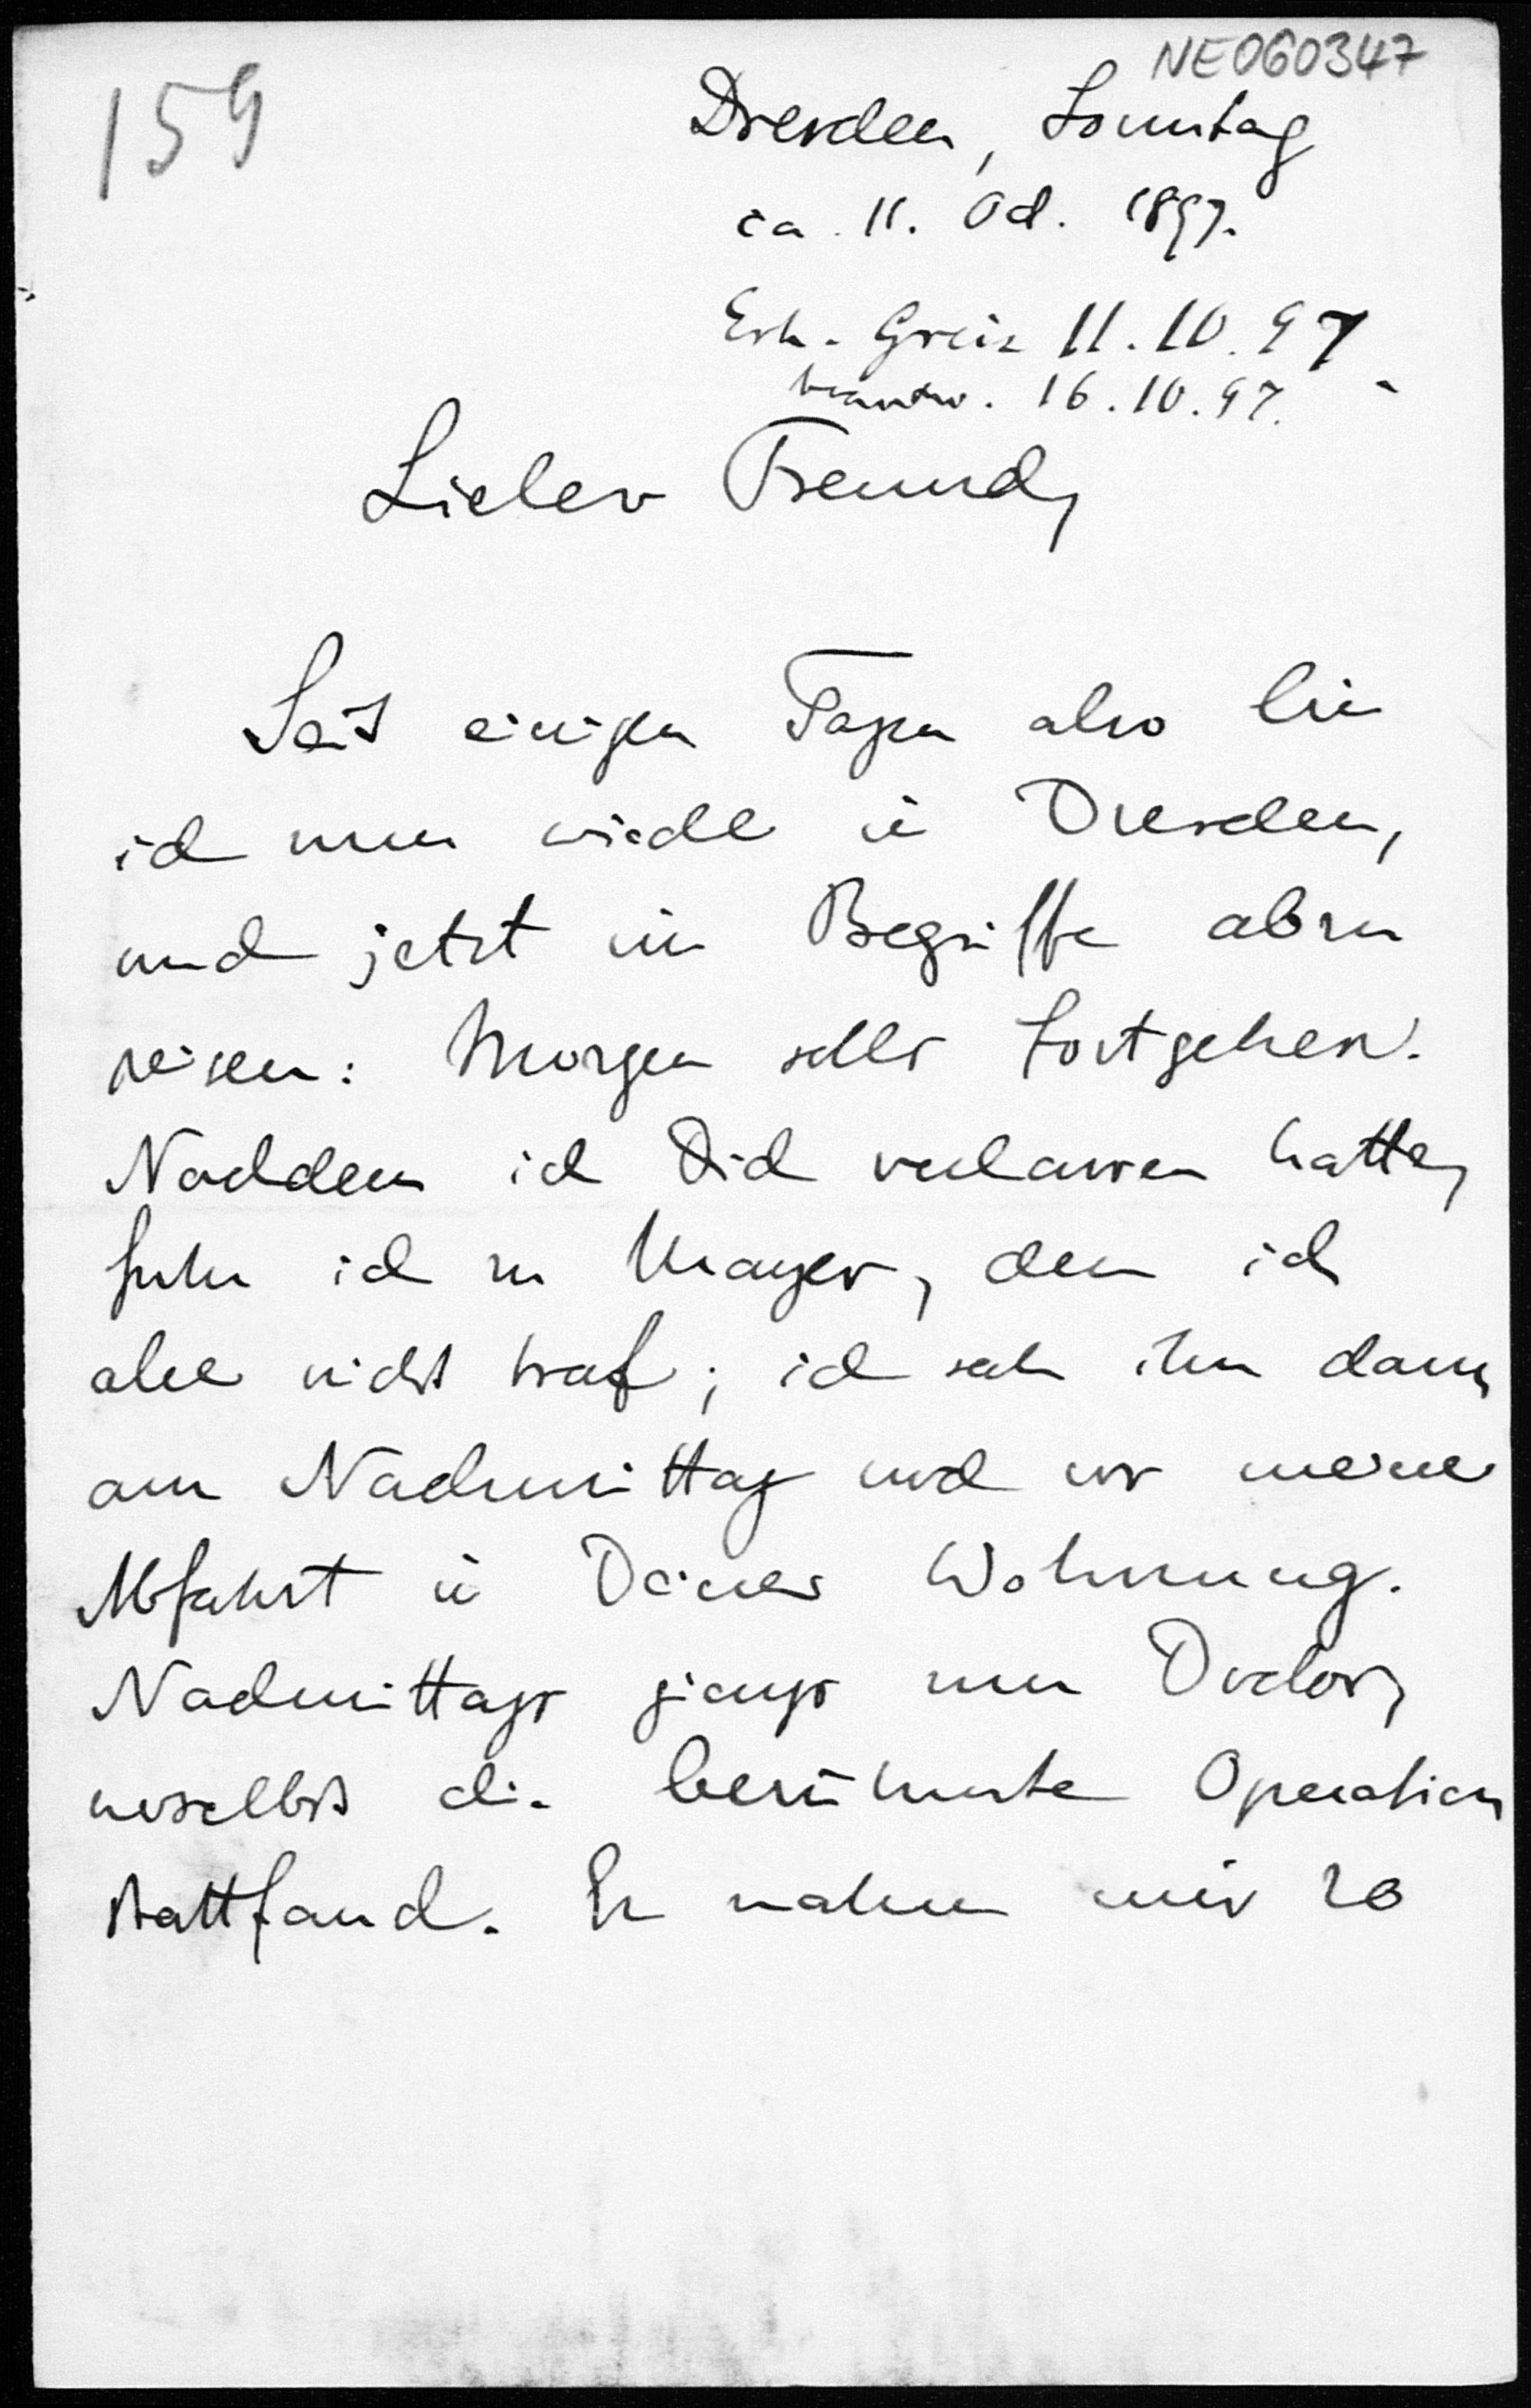 NE060347
159
Dresden, Sonntag
ca. 11. Oct. 1897.
Erh. Greiz 11.10.97
beantw. 16.10.97.
Lieber Freund,
Seit einigen Tagen also bin
ich nun wieder in Dresden,
und jetzt im Begriffe abzu
reisen: Morgen solls fortgehen.
Nachdem ich Dich verlassen hatte,
fuhr ich zu Mayer, den ich
aber nicht traf; ich sah ihn dann
am Nachmittag und vor meiner
Abfahrt in Deiner Wohnung.
Nachmittags giengs zum Doctor,
woselbst die berühmte Operation
stattfand. Er nahm mir 20